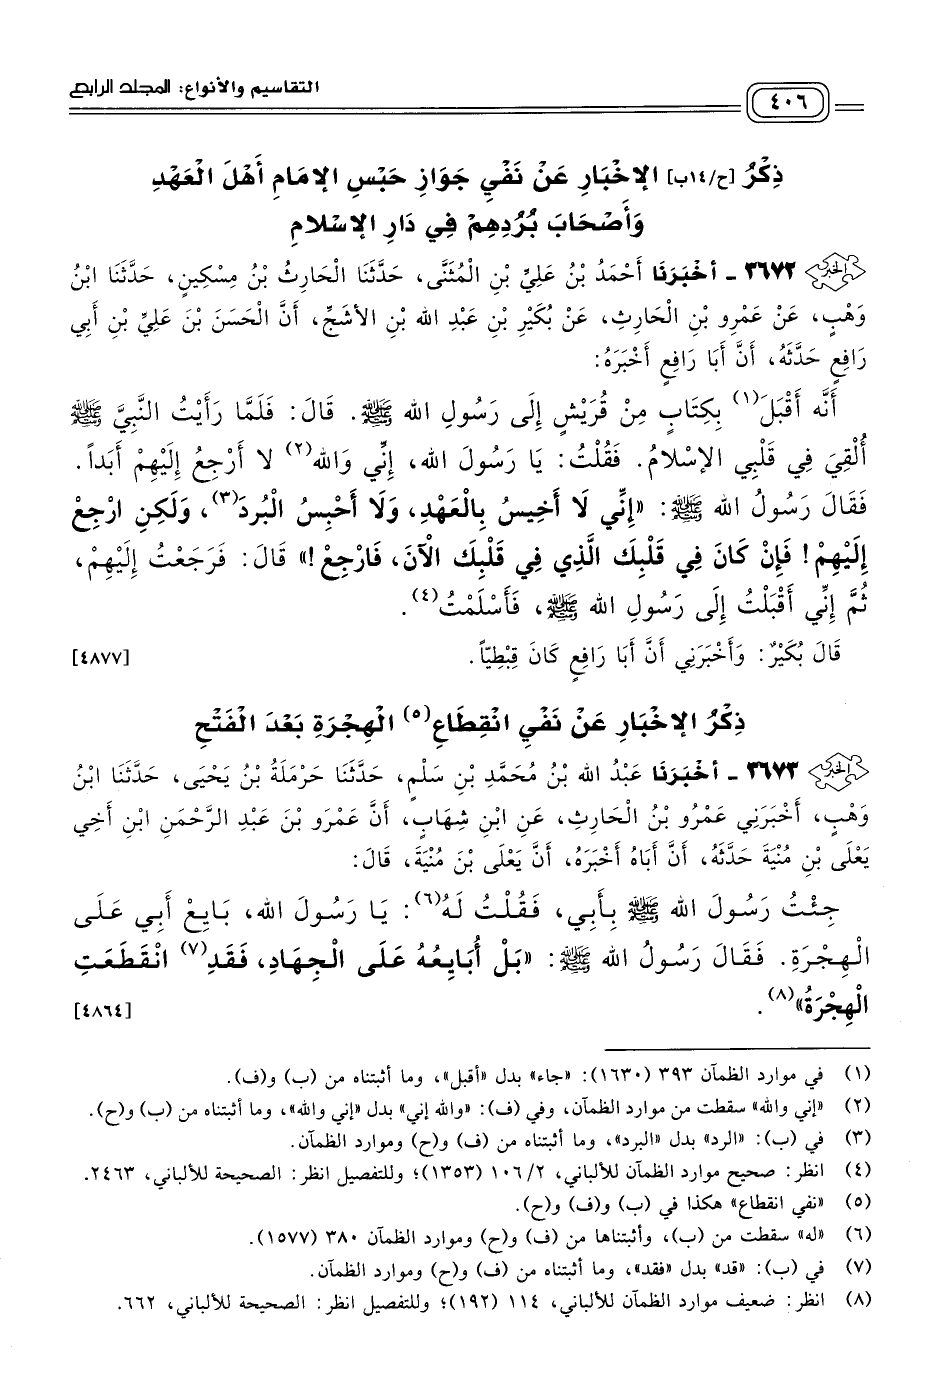 التقاسيم والأنواع: المجلد الرابع
٤٠٦
ذِكْرُ [ح/١٤ب] الإخْبَارِ عَنْ نَفْيِ جَوَازِ حَبْسِ الإمَامِ أَهْلَ الْعَهْدِ
وَأَصْحَابَ بُرُدِهِمْ فِي دَارِ الإسْلامِ
٣٦٧٢ - أخْبَرَنَا أَحْمَدُ بْنُ عَلِيِّ بْنِ الْمُثَنَّى، حَدَّثَنَا الْحَارِثُ بْنُ مِسْكِينٍ، حَدَّثَنَا ابْنُ
وَهْبٍ، عَنْ عَمْرِو بْنِ الْحَارِثِ، عَنْ بُكَيْرِ بْنِ عَبْدِ الله بْنِ الأشَجِّ، أَنَّ الْحَسَنَ بْنَ عَلِيِّ بْنِ أَبِي
رَافِعٍ حَدَّثَهُ، أَنَّ أَبَا رَافِعٍ أَخْبَرَهُ:
أَنَّه أَقْبَلَ(١) بِكِتَابٍ مِنْ قُرَيْشٍ إِلَى رَسُولِ الله ﷺ. قَالَ: فَلَمَّا رَأَيْتُ النَّبِيَّ ﷺ
أُلْقِيَ فِي قَلْبِي الإسْلامُ. فَقُلْتُ: يَا رَسُولَ الله، إِنِّي وَالله(٢) لا أَرْجِعُ إِلَيْهِمْ أَبَداً.
فَقَالَ رَسُولُ الله ﷺ: «إِنِّي لا أَخِيسُ بِالْعَهْدِ، وَلا أَحْبِسُ الْبُرُدَ(٣)، وَلَكِنِ ارْجِعْ
إِلَيْهِمْ! فَإِنْ كَانَ فِي قَلْبِكَ الَّذِي فِي قَلْبِكَ الْآنَ، فَارْجِعْ!» قَالَ: فَرَجَعْتُ إِلَيْهِمْ،
ثُمَّ إِنِّي أَقْبَلْتُ إِلَى رَسُولِ الله ﷺ، فَأَسْلَمْتُ(٤).
قَالَ بُكَيْرٌ: وَأَخْبَرَنِي أَنَّ أَبَا رَافِعٍ كَانَ قِبْطِيّاً. [٤٨٧٧]
ذِكْرُ الإخْبَارِ عَنْ نَفْيِ انْقِطَاعِ(٥) الْهِجْرَةِ بَعْدَ الْفَتْحِ
٣٦٧٣ - أخْبَرَنَا عَبْدُ الله بْنُ مُحَمَّدِ بْنِ سَلْمٍ، حَدَّثَنَا حَرْمَلَةُ بْنُ يَحْيَى، حَدَّثَنَا ابْنُ
وَهْبٍ، أَخْبَرَنِي عَمْرُو بْنُ الْحَارِثِ، عَنِ ابْنِ شِهَابٍ، أَنَّ عَمْرَو بْنَ عَبْدِ الرَّحْمَنِ ابْنِ أَخِي
يَعْلَى بْنِ مُنْيَةَ حَدَّثَهُ، أَنَّ أَبَاهُ أَخْبَرَهُ، أَنَّ يَعْلَى بْنَ مُنْيَةَ، قَالَ:
جِئْتُ رَسُولَ الله ﷺ بِأَبِي، فَقُلْتُ لَهُ(٦): يَا رَسُولَ الله، بَايِعْ أَبِي عَلَى
الْهِجْرَةِ. فَقَالَ رَسُولُ الله ﷺ: «بَلْ أُبَايِعُهُ عَلَى الْجِهَادِ، فَقَدِ(٧) انْقَطَعَتِ
الْهِجْرَةُ»(٨). [٤٨٦٤]
(١) في موارد الظمآن ٣٩٣ (١٦٣٠): «جاء» بدل «أقبل»، وما أثبتناه من (ب) و(ف).
(٢) «إني والله» سقطت من موارد الظمآن، وفي (ف): «والله إني» بدل «إني والله»، وما أثبتناه من (ب) و(ح).
(٣) في (ب): «الرد» بدل «البرد»، وما أثبتناه من (ف) و(ح) وموارد الظمآن.
(٤) انظر: صحيح موارد الظمآن للألباني، ١٠٦/٢ (١٣٥٣)؛ وللتفصيل انظر: الصحيحة للألباني، ٢٤٦٣.
(٥) «نفي انقطاع» هكذا في (ب) و(ف) و(ح).
(٦) «له» سقطت من (ب)، وأثبتناها من (ف) و(ح) وموارد الظمآن ٣٨٠ (١٥٧٧).
(٧) في (ب): «قد» بدل «فقد»، وما أثبتناه من (ف) و(ح) وموارد الظمآن.
(٨) انظر: ضعيف موارد الظمآن للألباني، ١١٤ (١٩٢)؛ وللتفصيل انظر: الصحيحة للألباني، ٦٦٢.